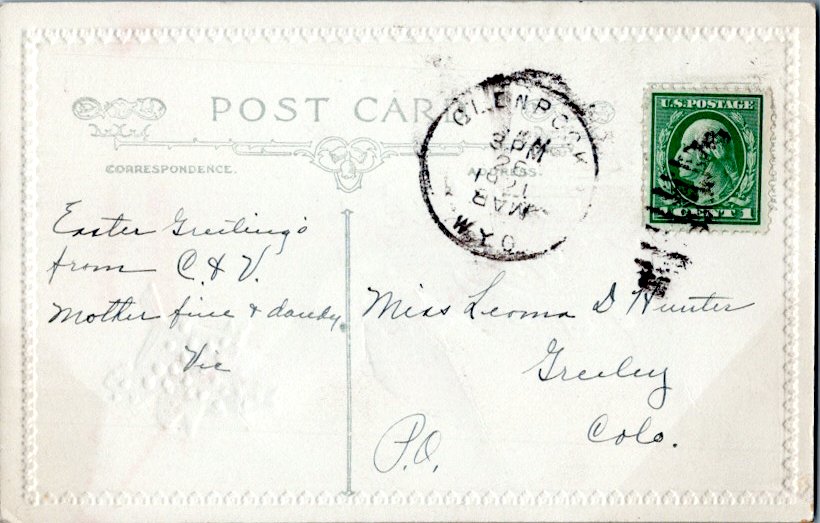 POST CARD
CORRESPONDENCE.
ADDRESS.
GLENROCK
3 PM
26
1921
MAR
WYO
U.S. POSTAGE
1 CENT 1
Easter Greetings
from C. & V.
Mother fine & dandy.
Vic
Miss Leoma D Hunter
Greeley
Colo.
P.O.